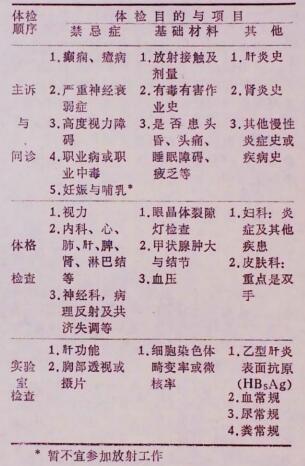 体检顺序 体检目的与项目
禁忌症 基础材料 其他
主诉与问诊
1.癫痫、癔病
2.严重神经衰弱症
3.高度视力障碍
4.职业病或职业中毒
5.妊娠与哺乳*
1.放射接触及剂量
2.有毒有害作业史
3.是否患头昏、头痛、睡眠障碍、疲乏等
1.肝炎史
2.肾炎史
3.其他慢性炎症史或疾病史
体格检查
1.视力
2.内科、心、肺、肝、脾、肾、淋巴结等
3.神经科,病理反射及共济失调等
1.眼晶体裂隙灯检查
2.甲状腺肿大与结节
3.血压
1.妇科:炎症及其他疾患
2.皮肤科:重点是双手
实验室检查
1.肝功能
2.胸部透视或摄片
1.细胞染色体畸变率或微核率
1.乙型肝炎表面抗原(HBsAg)
2.血常规
3.尿常规
4.粪常规
* 暂不宜参加放射工作